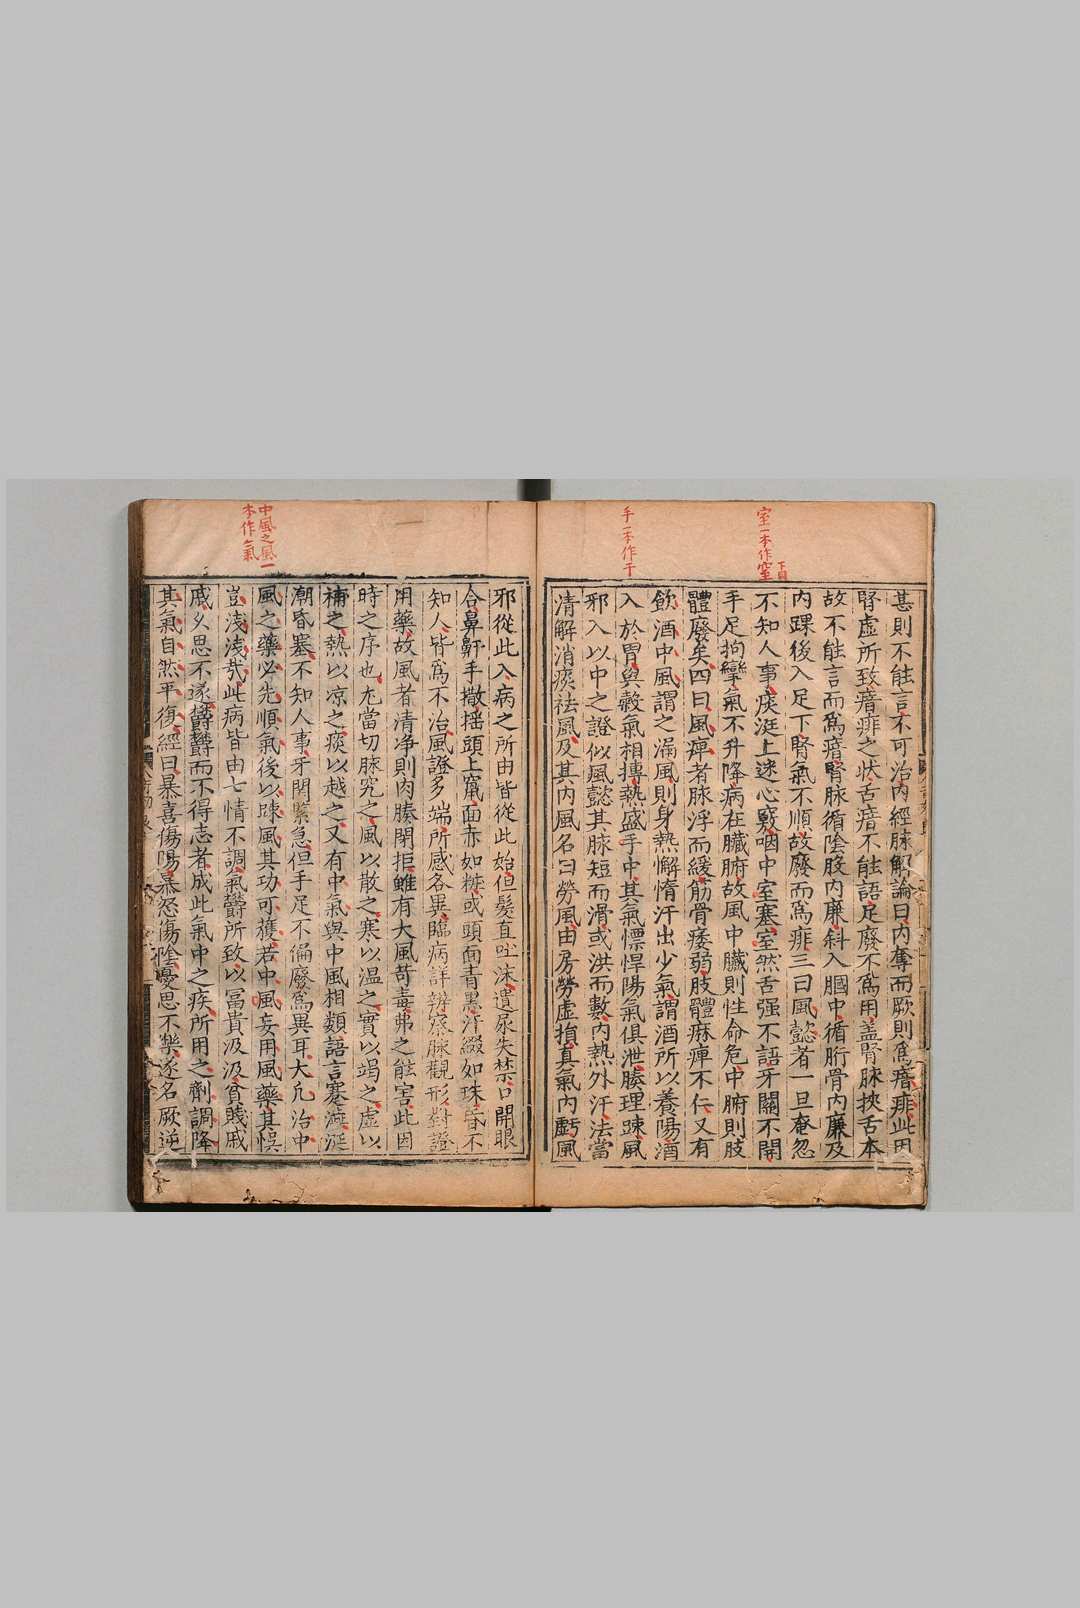 室一本作窒下同
手一本作干
甚則不能言不可治内經脉解論曰内奪而厥則爲瘖痱此因
腎虛所致瘖痱之狀舌瘖不能語足廢不爲用盖腎脉挾舌本
故不能言而爲瘖腎脉循陰股内廉斜入膕中循胻骨内廉及
内踝後入足下腎氣不順故廢而爲痱三曰風懿者一旦奄忽
不知人事痰涎上迷心竅咽中室塞室然舌强不語牙關不開
手足拘攣氣不升降病在臟腑故風中臟則性命危中腑則肢
體廢矣四曰風痺者脉浮而緩筋骨痿弱肢體麻痺不仁又有
飲酒中風謂之漏風則身熱懈惰汗出少氣謂酒所以養陽酒
入於胃與穀氣相摶熱盛手中其氣慓悍陽氣俱泄腠理踈風
邪入以中之證似風懿其脉短而滑或洪而數内熱外汗法當
清解消痰祛風及其内風名曰勞風由房勞虛損真氣内虧風
中風之風一本作氣
邪從此入病之所由皆從此始但髮直吐沫遺尿失禁口開眼
合鼻鼾手撒摇頭上竄面赤如糚或頭面青黑汗綴如珠昏不
知人皆爲不治風證多端所感各異臨病詳辨察脉觀形對證
用藥故風者清净則肉腠閉拒雖有大風苛毒弗之能害此因
時之序也尤當切脉究之風以散之寒以温之實以瀉之虛以
補之熱以凉之痰以越之又有中氣與中風相類語言蹇澁涎
潮昏塞不知人事牙関緊急但手足不偏廢爲異耳大凡治中
風之藥必先順氣後以踈風其功可獲若中風妄用風藥其悞
豈淺淺㢤此病皆由七情不調氣欝所致以冨貴汲汲貧賤戚
戚夊思不遂欝欝而不得志者成此氣中之疾所用之劑調降
其氣自然平復經曰暴喜傷陽暴怒傷陰憂思不樂遂名厥逆